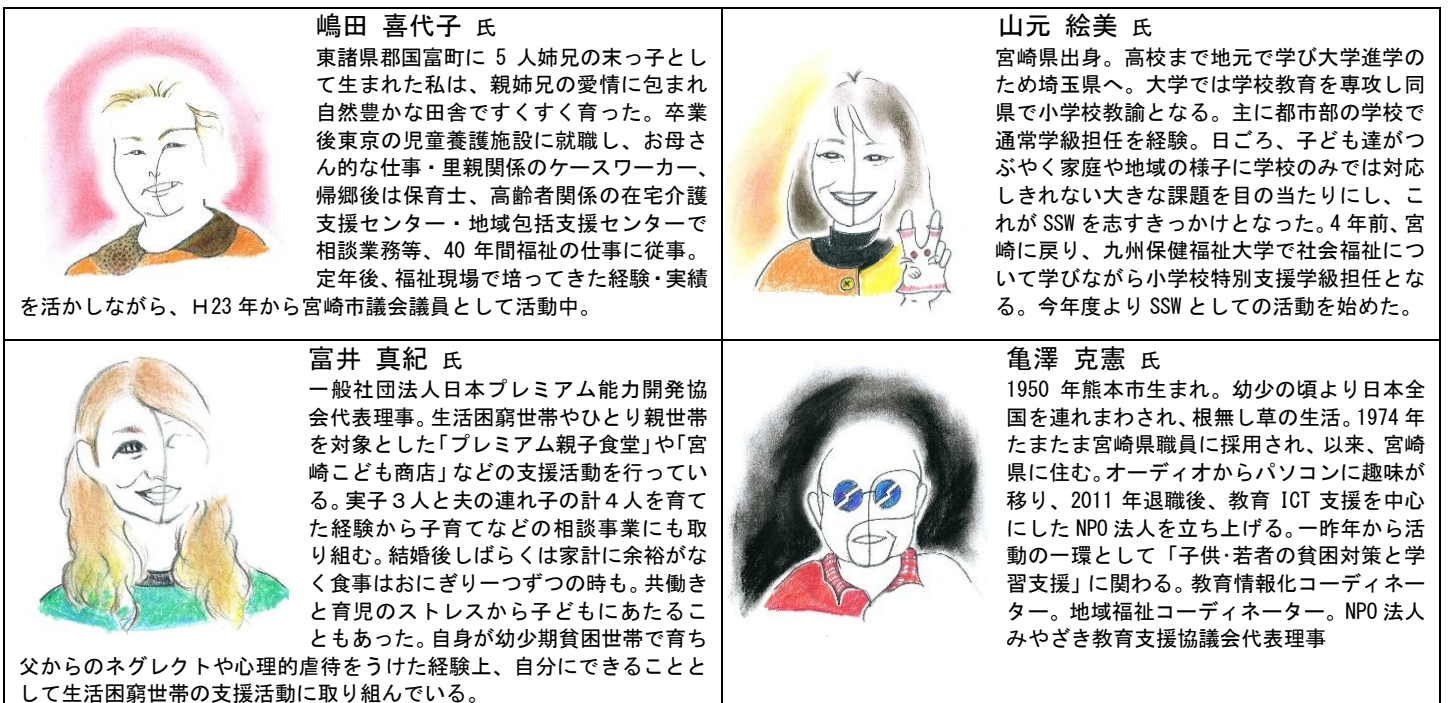 嶋田 喜代子 氏
東諸県郡国富町に 5 人姉兄の末っ子とし
て生まれた私は、親姉兄の愛情に包まれ
自然豊かな田舎ですくすく育った。卒業
後東京の児童養護施設に就職し、お母さ
ん的な仕事・里親関係のケースワーカー、
帰郷後は保育士、高齢者関係の在宅介護
支援センター・地域包括支援センターで
相談業務等、40 年間福祉の仕事に従事。
定年後、福祉現場で培ってきた経験・実績
を活かしながら、Ｈ23 年から宮崎市議会議員として活動中。
山元 絵美 氏
宮崎県出身。高校まで地元で学び大学進学の
ため埼玉県へ。大学では学校教育を専攻し同
県で小学校教諭となる。主に都市部の学校で
通常学級担任を経験。日ごろ、子ども達がつ
ぶやく家庭や地域の様子に学校のみでは対応
しきれない大きな課題を目の当たりにし、こ
れが SSW を志すきっかけとなった。4 年前、宮
崎に戻り、九州保健福祉大学で社会福祉につ
いて学びながら小学校特別支援学級担任とな
る。今年度より SSW としての活動を始めた。
富井 真紀 氏
一般社団法人日本プレミアム能力開発協
会代表理事。生活困窮世帯やひとり親世帯
を対象とした「プレミアム親子食堂」や「宮
崎こども商店」などの支援活動を行ってい
る。実子３人と夫の連れ子の計４人を育て
た経験から子育てなどの相談事業にも取
り組む。結婚後しばらくは家計に余裕がな
く食事はおにぎり一つずつの時も。共働き
と育児のストレスから子どもにあたるこ
ともあった。自身が幼少期貧困世帯で育ち
父からのネグレクトや心理的虐待をうけた経験上、自分にできることと
して生活困窮世帯の支援活動に取り組んでいる。
亀澤 克憲 氏
1950 年熊本市生まれ。幼少の頃より日本全
国を連れまわされ、根無し草の生活。1974 年
たまたま宮崎県職員に採用され、以来、宮崎
県に住む。オーディオからパソコンに趣味が
移り、2011 年退職後、教育 ICT 支援を中心
にした NPO 法人を立ち上げる。一昨年から活
動の一環として「子供・若者の貧困対策と学
習支援」に関わる。教育情報化コーディネー
ター。地域福祉コーディネーター。NPO 法人
みやざき教育支援協議会代表理事